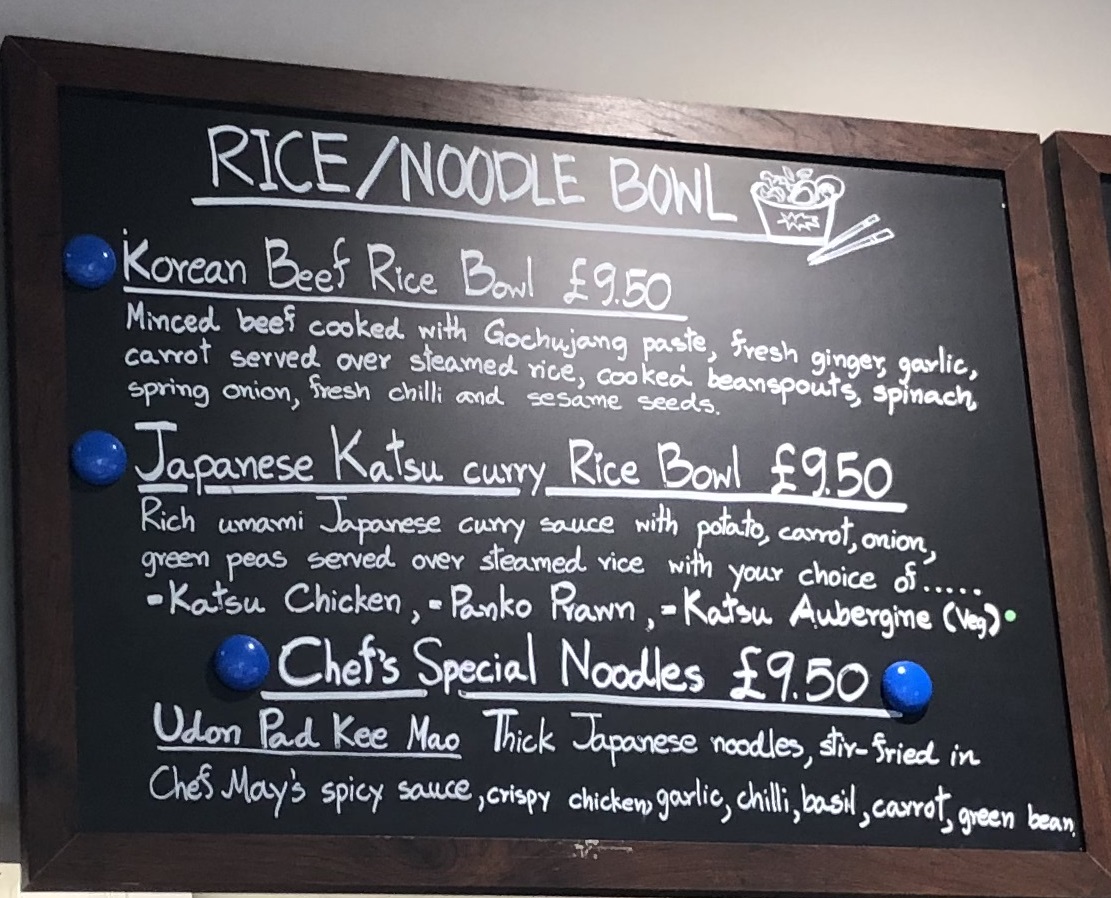 RICE/NOODLE BOWL
Korean Beef Rice Bowl £9.50
Minced beef cooked with Gochujang paste, fresh ginger, garlic,
carrot served over steamed rice, cooked beanspouts, spinach,
spring onion, fresh chilli and sesame seeds.
Japanese Katsu curry Rice Bowl £9.50
Rich umami Japanese curry sauce with potato, carrot, onion,
green peas served over steamed rice with your choice of.....
-Katsu Chicken, -Panko Prawn, -Katsu Aubergine (Veg)
Chef's Special Noodles £9.50
Udon Pad Kee Mao Thick Japanese noodles, stir-fried in
Chef May's spicy sauce, crispy chicken, garlic, chilli, basil, carrot, green bean.